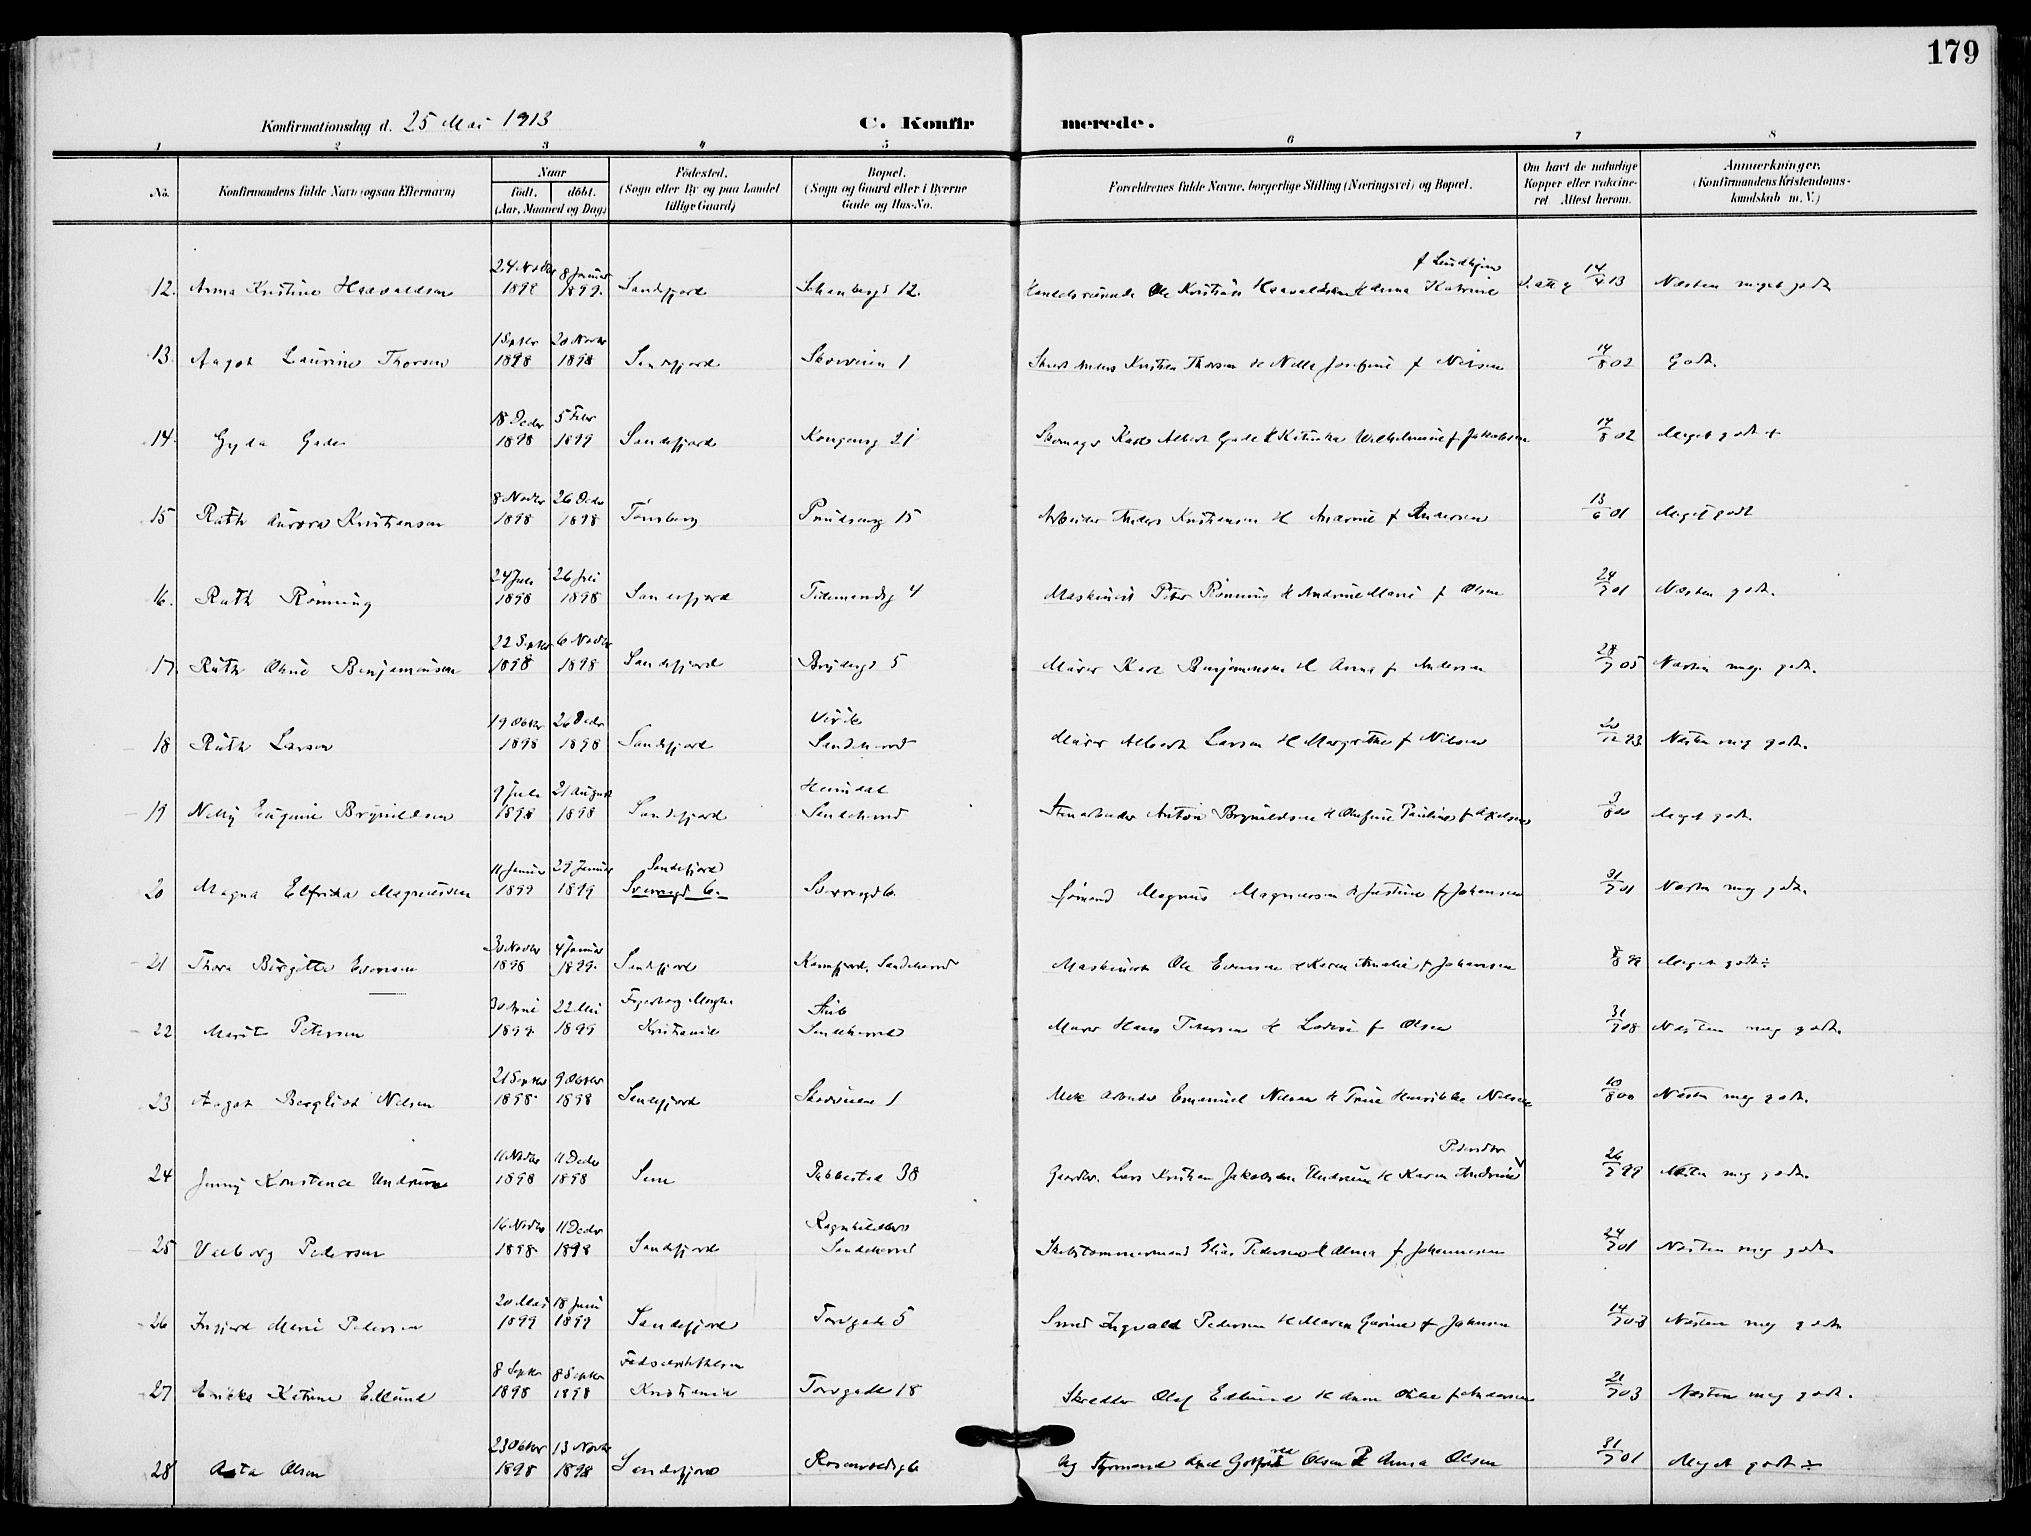 179
Konfirmationsdag d. 25 Mai 1913
C. Konfirmerede.
1 2 3 4 5 6 7 8
No. Konfirmandens fulde Navn (ogsaa Efternavn) Naar født. døbt. (Aar, Maaned og Dag) Fødested. (Sogn eller By og paa Landet tillige Gaard) Bopæl. (Sogn og Gaard eller i Byerne Gade og Hus-No. Forældrenes fulde Navne, borgerlige Stilling (Næringsvei) og Bopæl. Om havt de naturlige Kopper eller vaccineret Attest herom. Anmerkninger. (Konfirmandens Kristendomskundskab m. V.)
12. Anna Kristine Haavaldsen 24 Novbr 1898 8 Januar 1899. Sandefjord 12. Handelsreisende Ole Kristian Haavaldsen & Anna Katrine f Lindhjem 14/4 13 Næsten meget godt
13. Aagot Laurine Thorsen 1 Septbr 1898 20 Novbr 1898 Sandefjord Skoveien 1 Kristian Thorsen & Nella Josefine f Nilsen 14/8 02 Godt.
14. Gyda Gade 18 Decbr 1898 5 Febr 1899 Sandefjord Kongensg 21 Skomager Karl Albert Gade & Wilhelmine f Jakobsen 14/8 02 Meget godt +
15 Ruth Aurora Kristiansen 8 Novbr 1898 26 Decbr 1898 Tønsberg 15 Arbeider Anders Kristiansen & f Andersen 13/6 01 Meget godt
16. Ruth Rønning 24 Juni 1898 26 Juli 1898 Sandefjord Tidemandsg 4 Maskinist Peter Rønning & Andrine Marie f Olsen 24/7 01 Næsten godt.
17. Ruth Benjaminsen 22 Septbr 1898 6 Novbr 1898 Sandefjord 5 Murer Karl Benjaminsen & Anna f Andersen 28/7 05 Næsten meg. godt.
18 Ruth Larsen 19 Oktbr 1898 26 Decbr 1898 Sandefjord Virik Sandeherred Murer Albert Larsen & Margrethe f Nilsen Næsten meg godt.
19 Nelly Eugenie Brynildsen 9 Juli 1898 21 August 1898 Sandefjord Heimdal Sandeherred Stenarbeider Anton Brynildsen & Olefine Pauline f Meget godt.
20 Magna Elfrida Magnussen 11 Januar 1899 29 Januar 1899 Sandefjord Sverresgd 6. Sverresgd 6. Sømand Magnus Magnussen & Justine f Johansen 31/7 01 Næsten meg godt.
21 Thora Birgitte Evensen 30 Novbr 1898 4 Januar 1899. Sandefjord Kamfjord, Sandeherred Maskinist Ole Evensen & Karen Amalie f Johansen Meget godt ÷
22 Marit Petersen 30 April 1899 22 Mai 1899 Kristiania Stub Sandeherred Murer Hans Petersen & f Olsen 31/7 08 Næsten meg godt.
23 Aagot Bergliot Nilsen 21 Septbr 1898 9 Oktbr 1898 Sandefjord Skoveien 1 Mek Arbeider Emanuel Nilsen & Trine Henrikke Nilsen 10/8 00 Næsten meg godt.
24 Jenny Konstance Undrum 11 Novbr 1898 11 Decbr 1898 Sem Pukkestad 38 Gaardbr. Lars Kristian Jakobsen Undrum & Karen Andrine Pedersdtr 26/7 99 Næsten meg godt.
25 Valborg Pedersen 16 Novbr 1898 11 Decbr 1898 Sandefjord Ragnhildsro Sandeherred Skibstømmermand Elias Pedersen & Alma f Johannesen 24/7 01 Næsten meg godt.
26 Ingjerd Marie Pedersen 20 Mai 1899 18 Juni 1899 Sandefjord Torvgade 5 Smed Ingvald Pedersen & Maren Gurine f Johnsen 14/7 03 Næsten meg godt
27 Katrine Edlund 8 Septbr 1898 8 Septbr 1898 Fødselsstiftelsen Kristiania Torvgade 18 Skredder Olaf Edlund & f Andersen 21/7 03 Næsten meg godt.
28 Asta Olsen 23 Oktbr 1898 13 Novbr 1898 Sandefjord Rosenvoldsg 6 Styrmand Axel Gotfred Olsen & Anna Olsen 31/7 01 Meget godt ÷